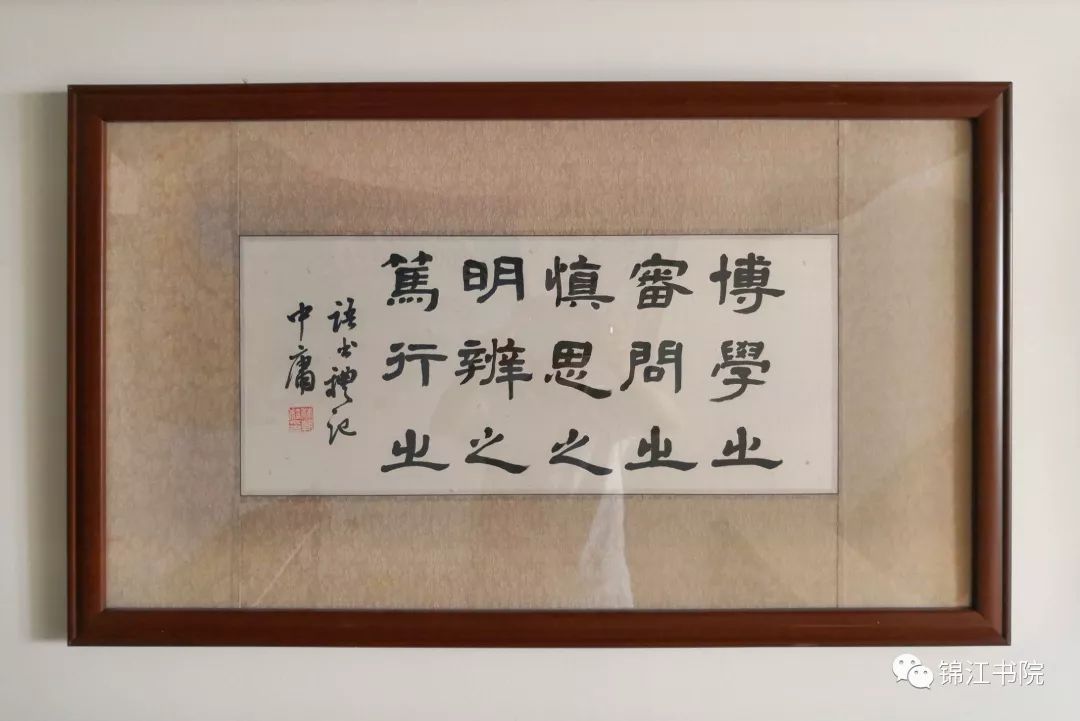 博學之
審問之
慎思之
明辨之
篤行之
語出禮記
中庸
锦江书院